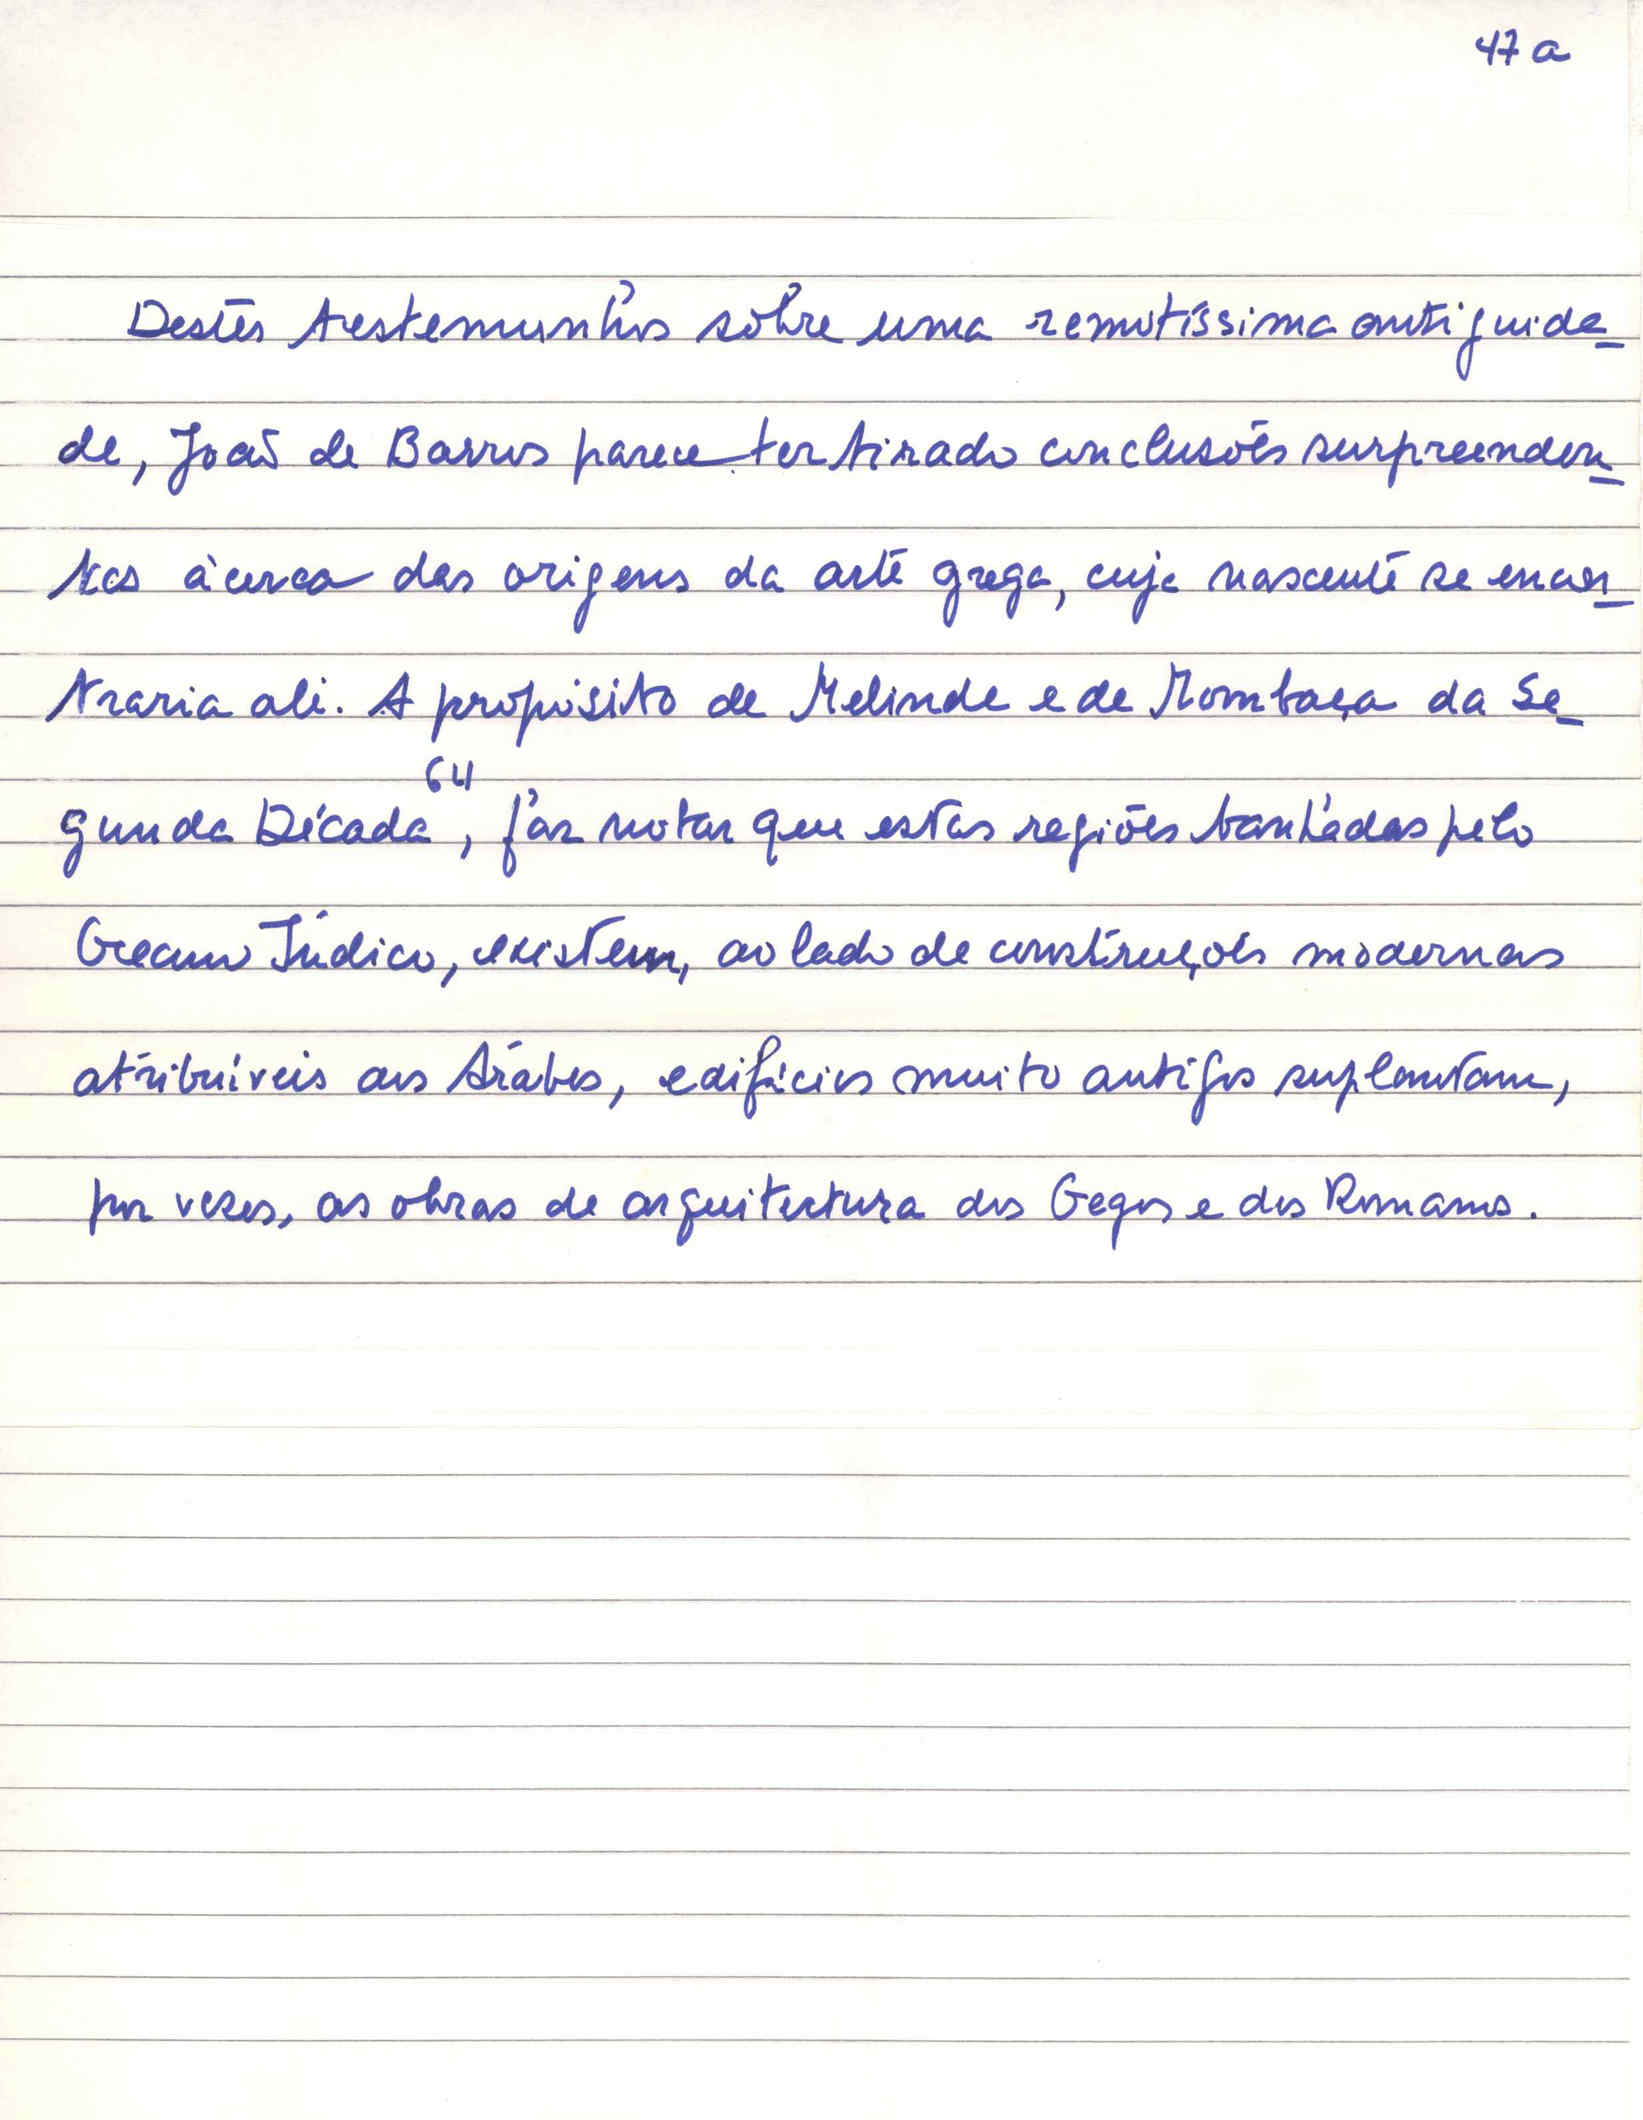 47 a
Destes testemunhos sôbre uma remotíssima antiguida-
de, João de Barros parece ter tirado conclusões surpreenden-
tes àcerca das origens da arte grega, cuja nascente se encon-
traria ali. A propósito de Melinde e de Mombaça da Se-
gunda Década 64, faz notar que estas regiões banhadas pelo
Oceano Índico, existem, ao lado de construções modernas
atribuíveis aos Árabes, edifícios muito antigos suplantam,
por vezes, as obras de arquitectura dos Gegos e dos Romanos.